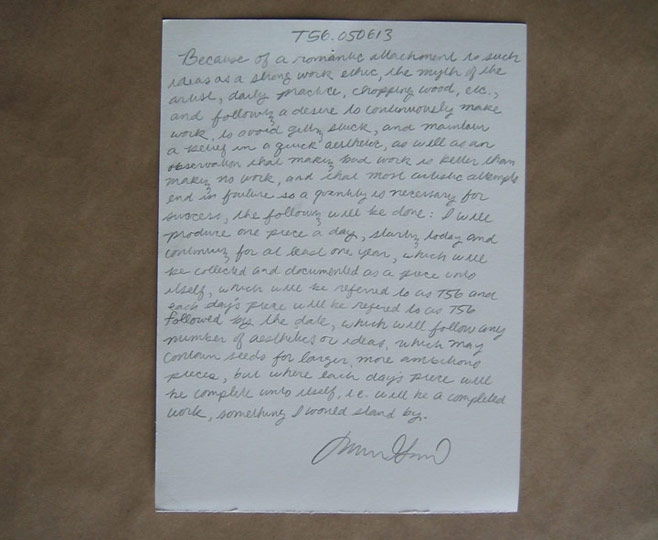 T56.050613
Because of a romantic attachment to such
ideas as a strong work ethic, the myth of the
artist, daily practice, chopping wood, etc.,
and following a desire to continuously make
work, to avoid getting stuck, and maintain
a belief in a quick aesthetic, as well as an
observation that making bad work is better than
making no work, and that most artistic attempts
end in failure so a quantity is necessary for
success, the following will be done: I will
produce one piece a day, starting today and
continuing for at least one year, which will
be collected and documented as a piece unto
itself, which will be referred to as T56 and
each day's piece will be refered to as T56
followed by the date, which will follow any
number of aesthetics or ideas, which may
contain seeds for larger, more ambitious
pieces, but where each day's piece will
be complete unto itself, i.e. will be a completed
work, something I would stand by.